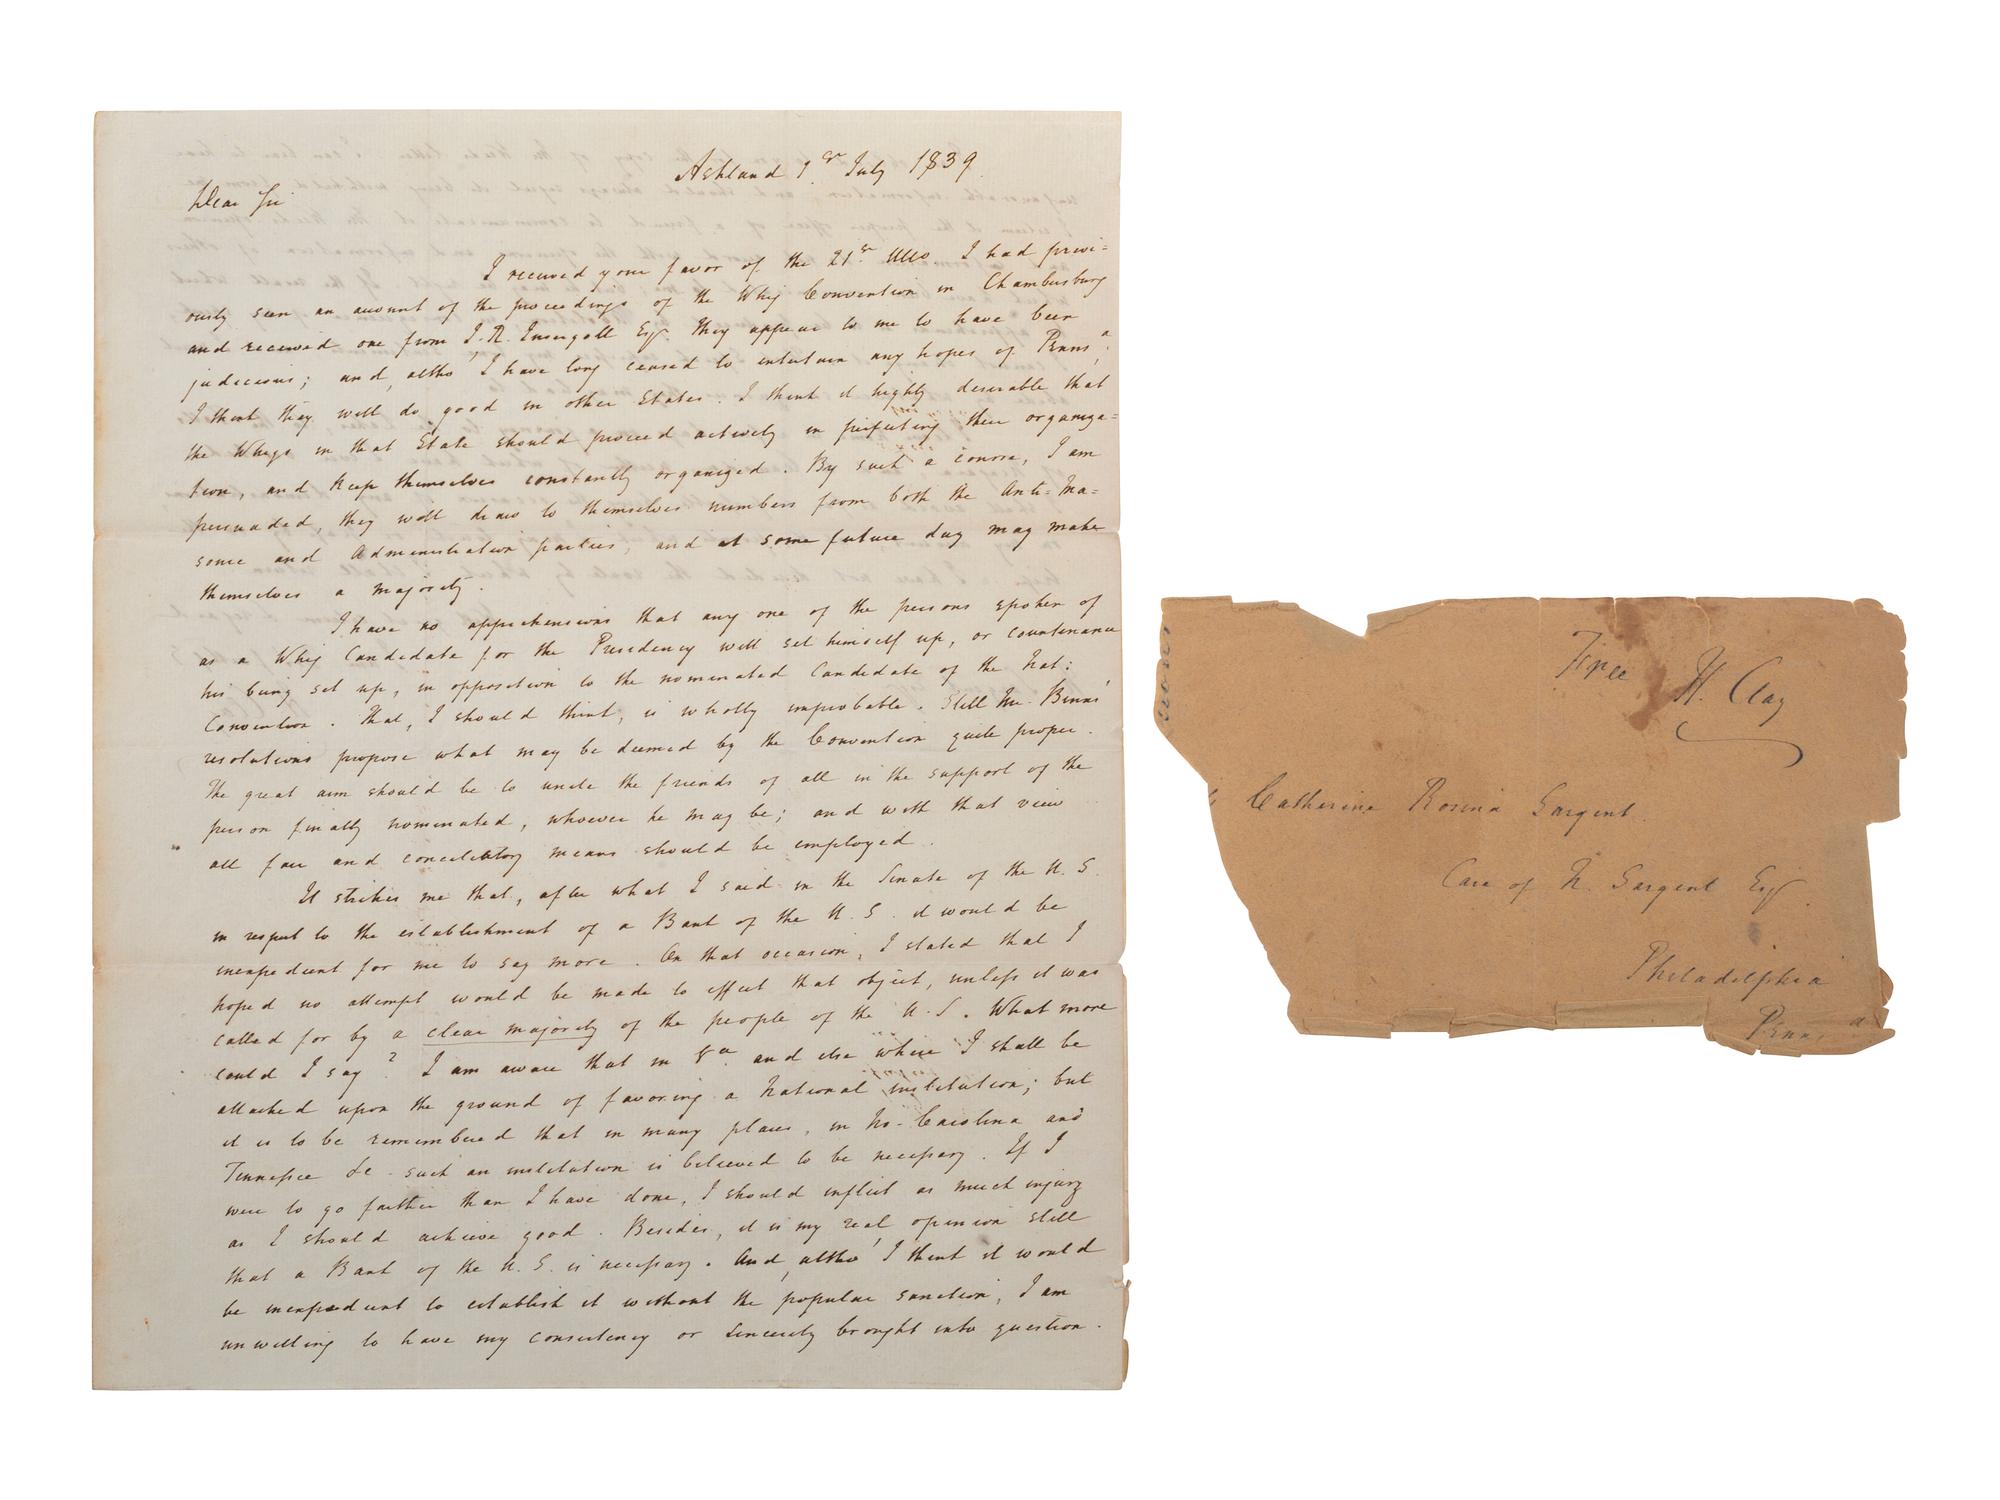 Ashland 1st July 1839.
Dear Sir
I received your favor of the 21st Ulto. I had previ=
ously seen an account of the proceedings of the Whig Convention in Chambersburg
and received one from J. R. Ingersoll Esqr. They appear to me to have been
judicious; and, altho' I have long ceased to entertain any hopes of Penna,
I think they will do good in other States. I think it highly desirable that
the Whigs in that State should proceed actively in perfecting their organiza=
tion, and keep themselves constantly organized. By such a course, I am
persuaded, they will draw to themselves numbers from both the Anti-Ma=
sonic and Administration parties, and at some future day may make
themselves a majority.
I have no apprehensions that any one of the persons spoken of
as a Whig Candidate for the Presidency will set himself up, or countenance
his being set up, in opposition to the nominated Candidate of the Nat:
Convention. That, I should think, is wholly improbable. Still Mr. Binns'
resolutions propose what may be deemed by the Convention quite proper.
The great aim should be to unite the friends of all in the support of the
person finally nominated, whoever he may be; and with that view
all fair and conciliatory means should be employed.
It strikes me that, after what I said in the Senate of the U. S.
in respect to the establishment of a Bank of the U. S. it would be
inexpedient for me to say more. On that occasion, I stated that I
hoped no attempt would be made to effect that object, unless it was
called for by a clear majority of the people of the U. S. What more
could I say? I am aware that in Va. and else where I shall be
attacked upon the ground of favoring a National institution; but
it is to be remembered that in many places, in No. Carolina and
Tennessee &c such an institution is believed to be necessary. If I
were to go further than I have done, I should inflict as much injury
as I should achieve good. Besides, it is my real opinion still
that a Bank of the U. S. is necessary. And, altho' I think it would
be inexpedient to establish it without the popular sanction, I am
unwilling to have my consistency or sincerity brought into question.
Free H. Clay
Catherine Rosina Sargent
Care of N. Sargent Esqr.
Philadelphia
Penna